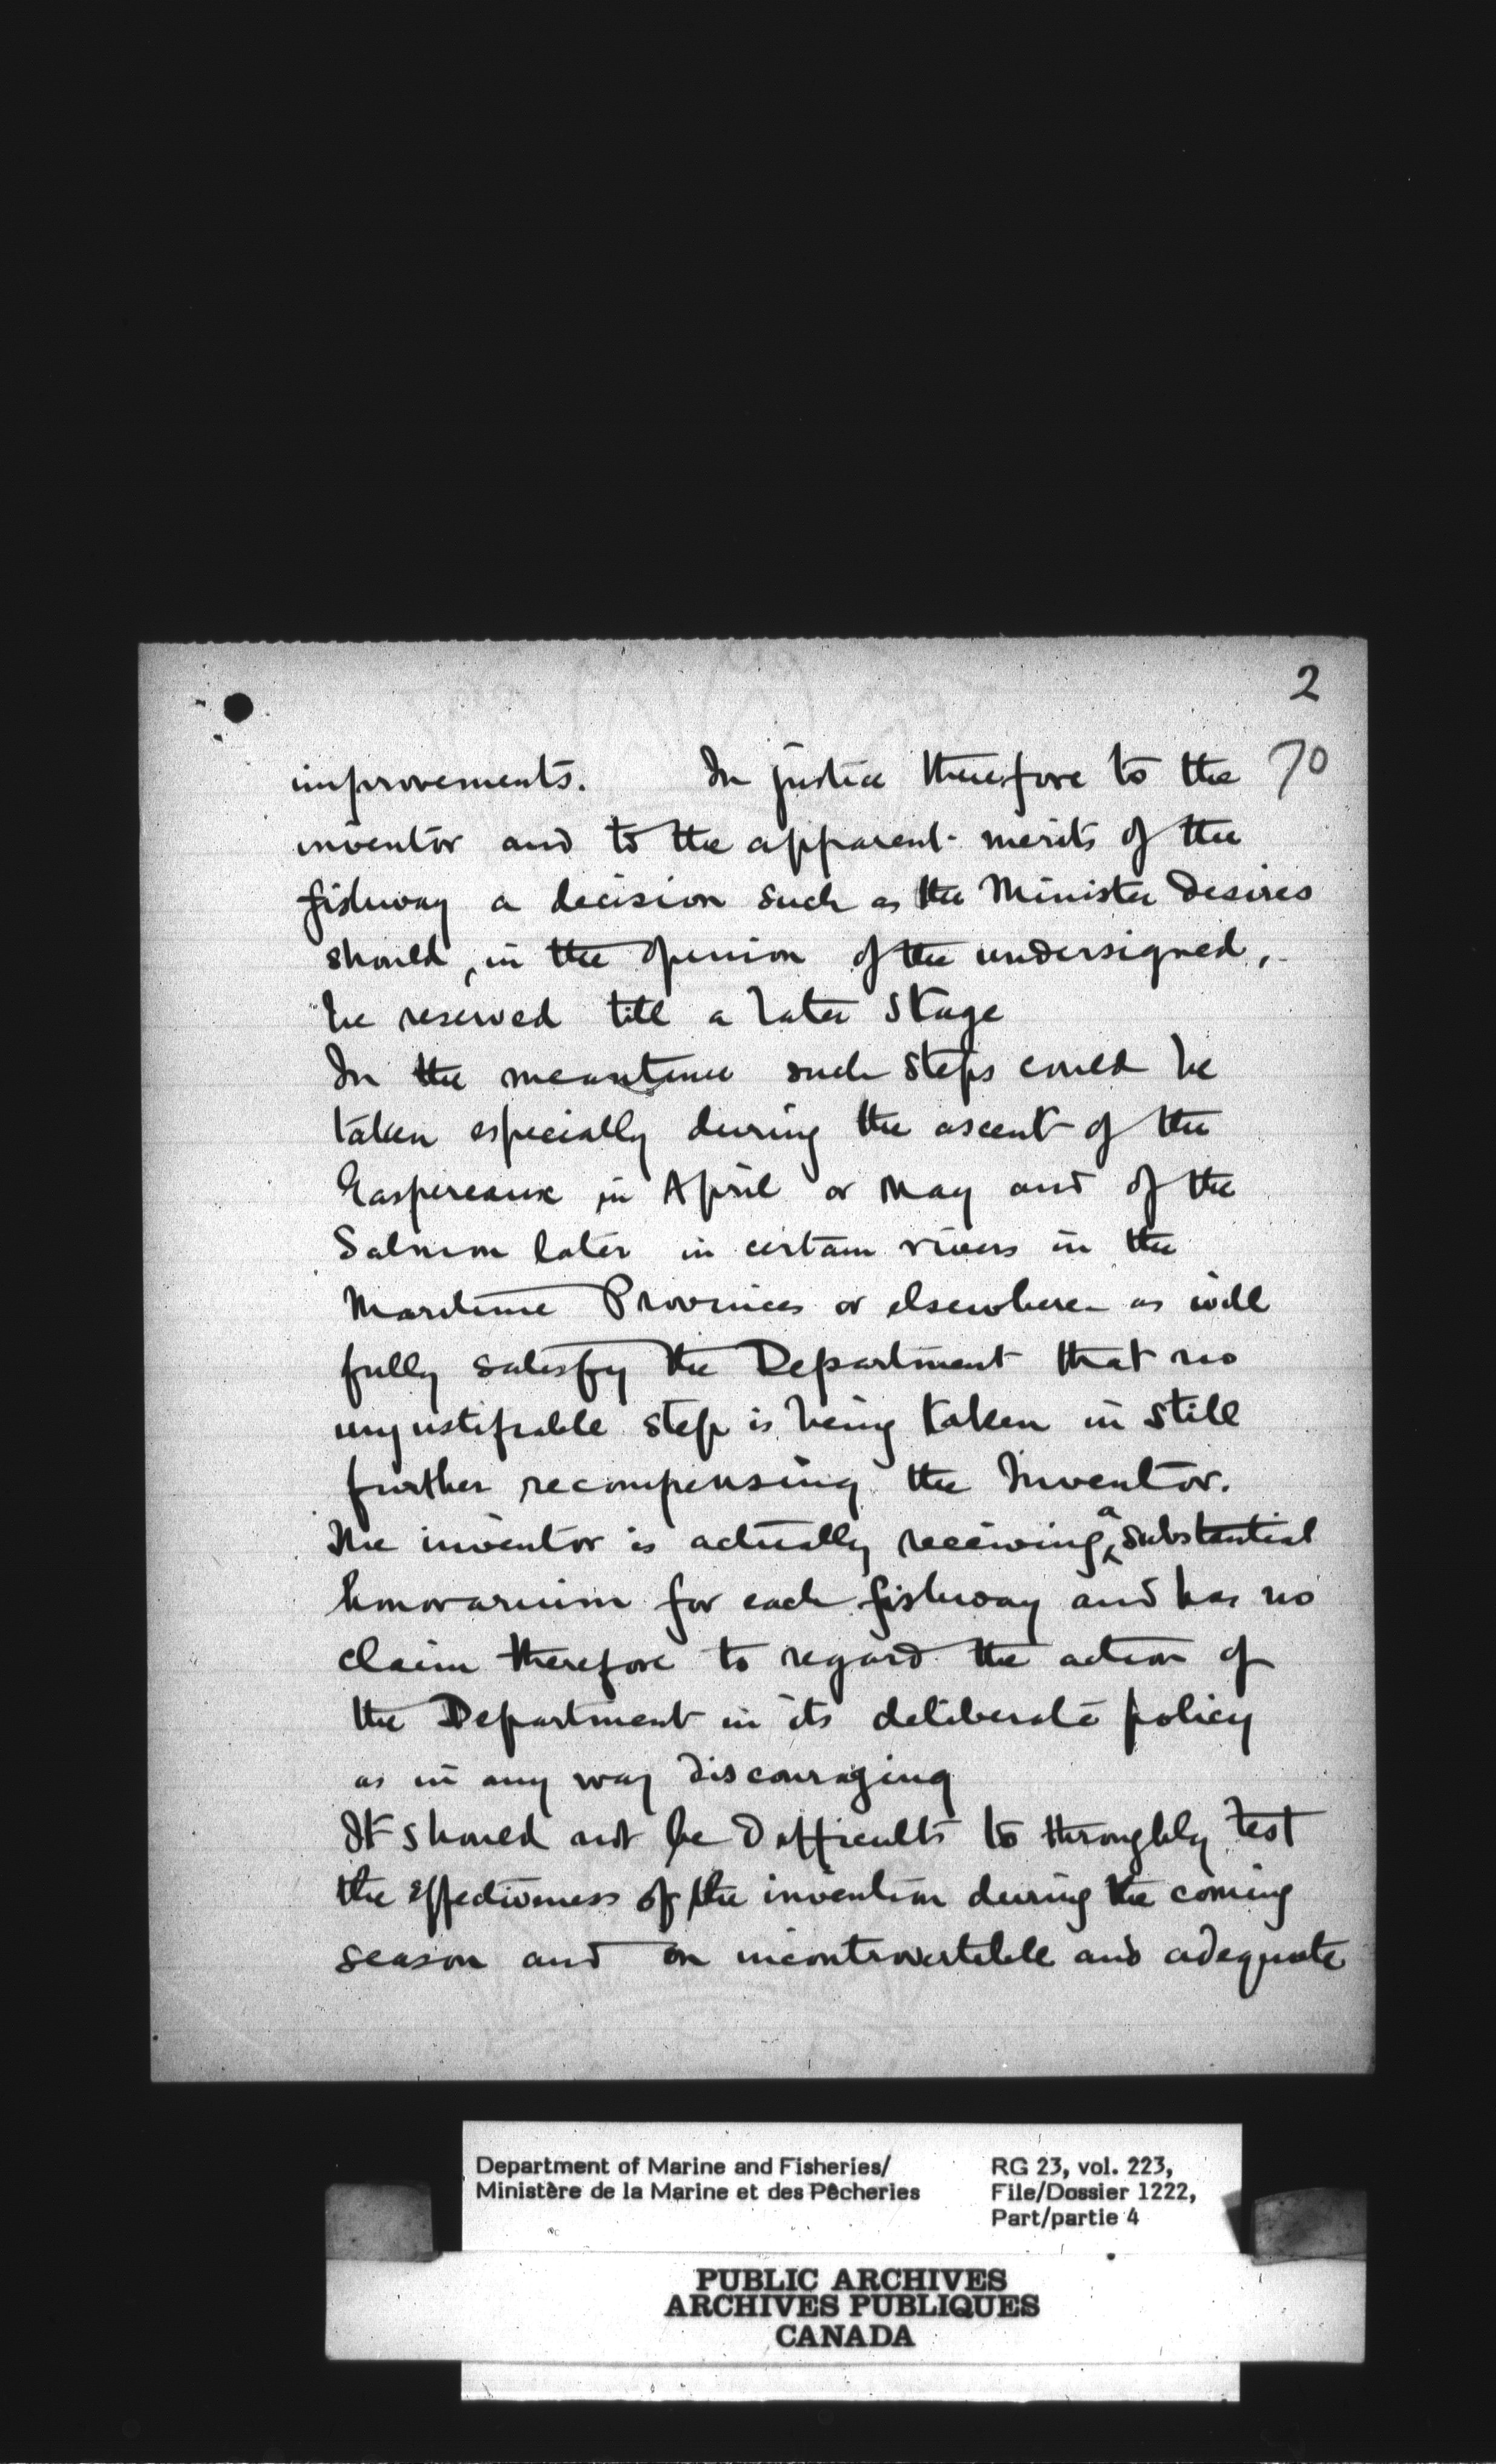 2
70
improvements. In justice therefore to the
inventor and to the apparent merits of the
fishway a decision such as the Minister desires
should, in the opinion of the undersigned,
be reserved till a later stage
In the meantime such steps could be
taken especially during the ascent of the
Gaspereaux in April or May and of the
Salmon later in certain rivers in the
Maritime Provinces or elsewhere as will
fully satisfy the Department that no
unjustifiable step is being taken in still
further recompensing the Inventor.
The inventor is actually receiving a substantial
honorarium for each fishway and has no
claim therefore to regard the action of
the Department in its deliberate policy
as in any way discouraging
It should not be difficult to throughly test
the effectiveness of the invention during the coming
season and on incontrovertible and adequate
Department of Marine and Fisheries/
Ministère de la Marine et des Pêcheries
RG 23, vol. 223,
File/Dossier 1222,
Part/partie 4
PUBLIC ARCHIVES
ARCHIVES PUBLIQUES
CANADA